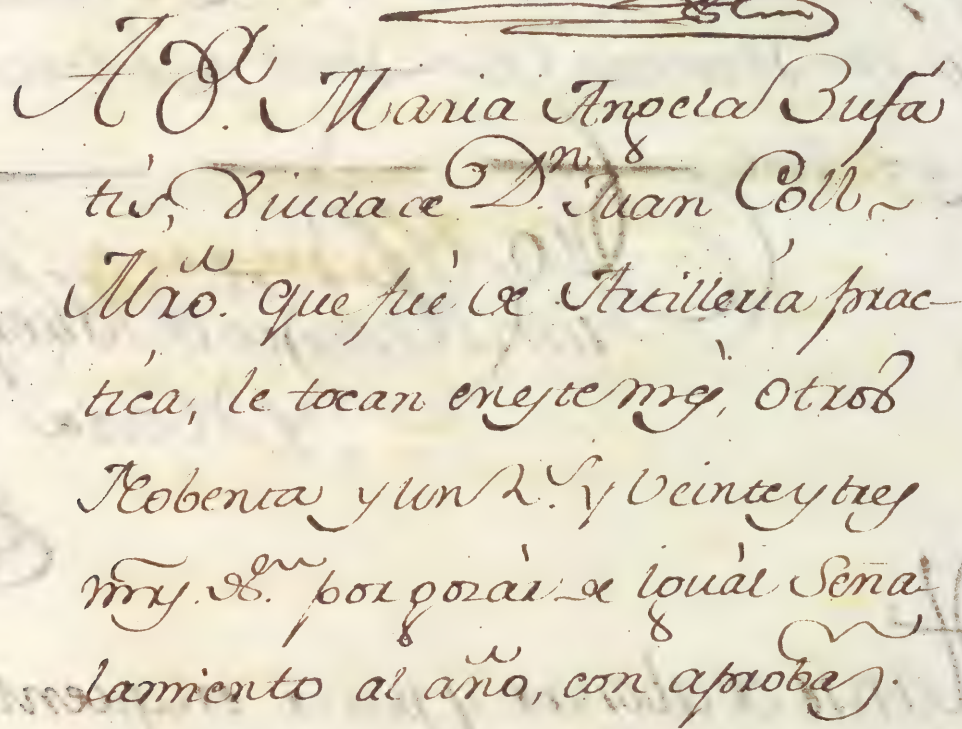 A D.ª Maria Angela Bufa
tis, Viuda de D.n Juan Coll~
Mrõ. que fué de Artilleria prac-
tica, le tocan eneste mes, otros
Nobenta y un R.s y Veinte y tres
mrs. por gozár de iguál Seña-
lamiento al año, con aproba.